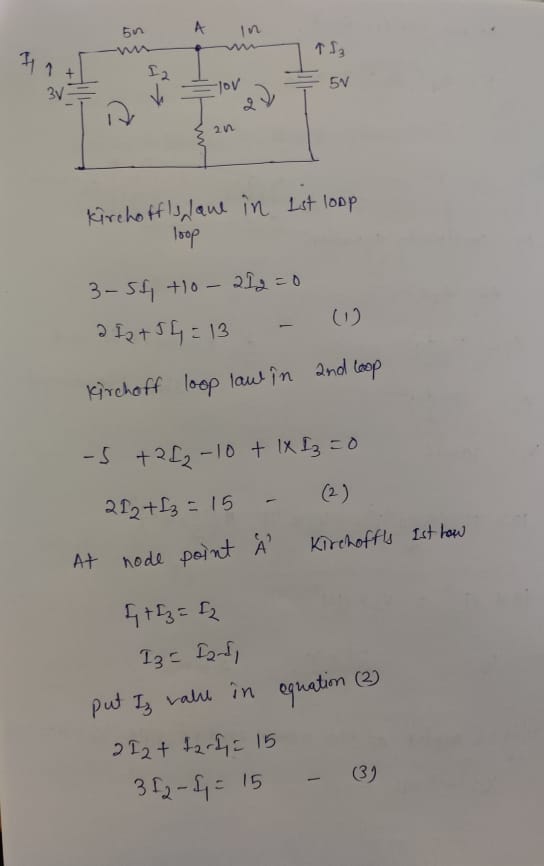 5Ω A 1Ω
I₁ ↑ + I₂ 10V ↑ I₃
3V - ↓ 5V
1 2
2Ω
Kirchoff's law in 1st loop
loop
3 - 5I₁ + 10 - 2I₂ = 0
2I₂ + 5I₁ = 13 - (1)
Kirchoff loop law in 2nd loop
-5 + 2I₂ - 10 + 1 x I₃ = 0
2I₂ + I₃ = 15 - (2)
At node point 'A' Kirchoff's Ist law
I₁ + I₃ = I₂
I₃ = I₂ - I₁
put I₃ value in equation (2)
2I₂ + I₂ - I₁ = 15
3I₂ - I₁ = 15 - (3)